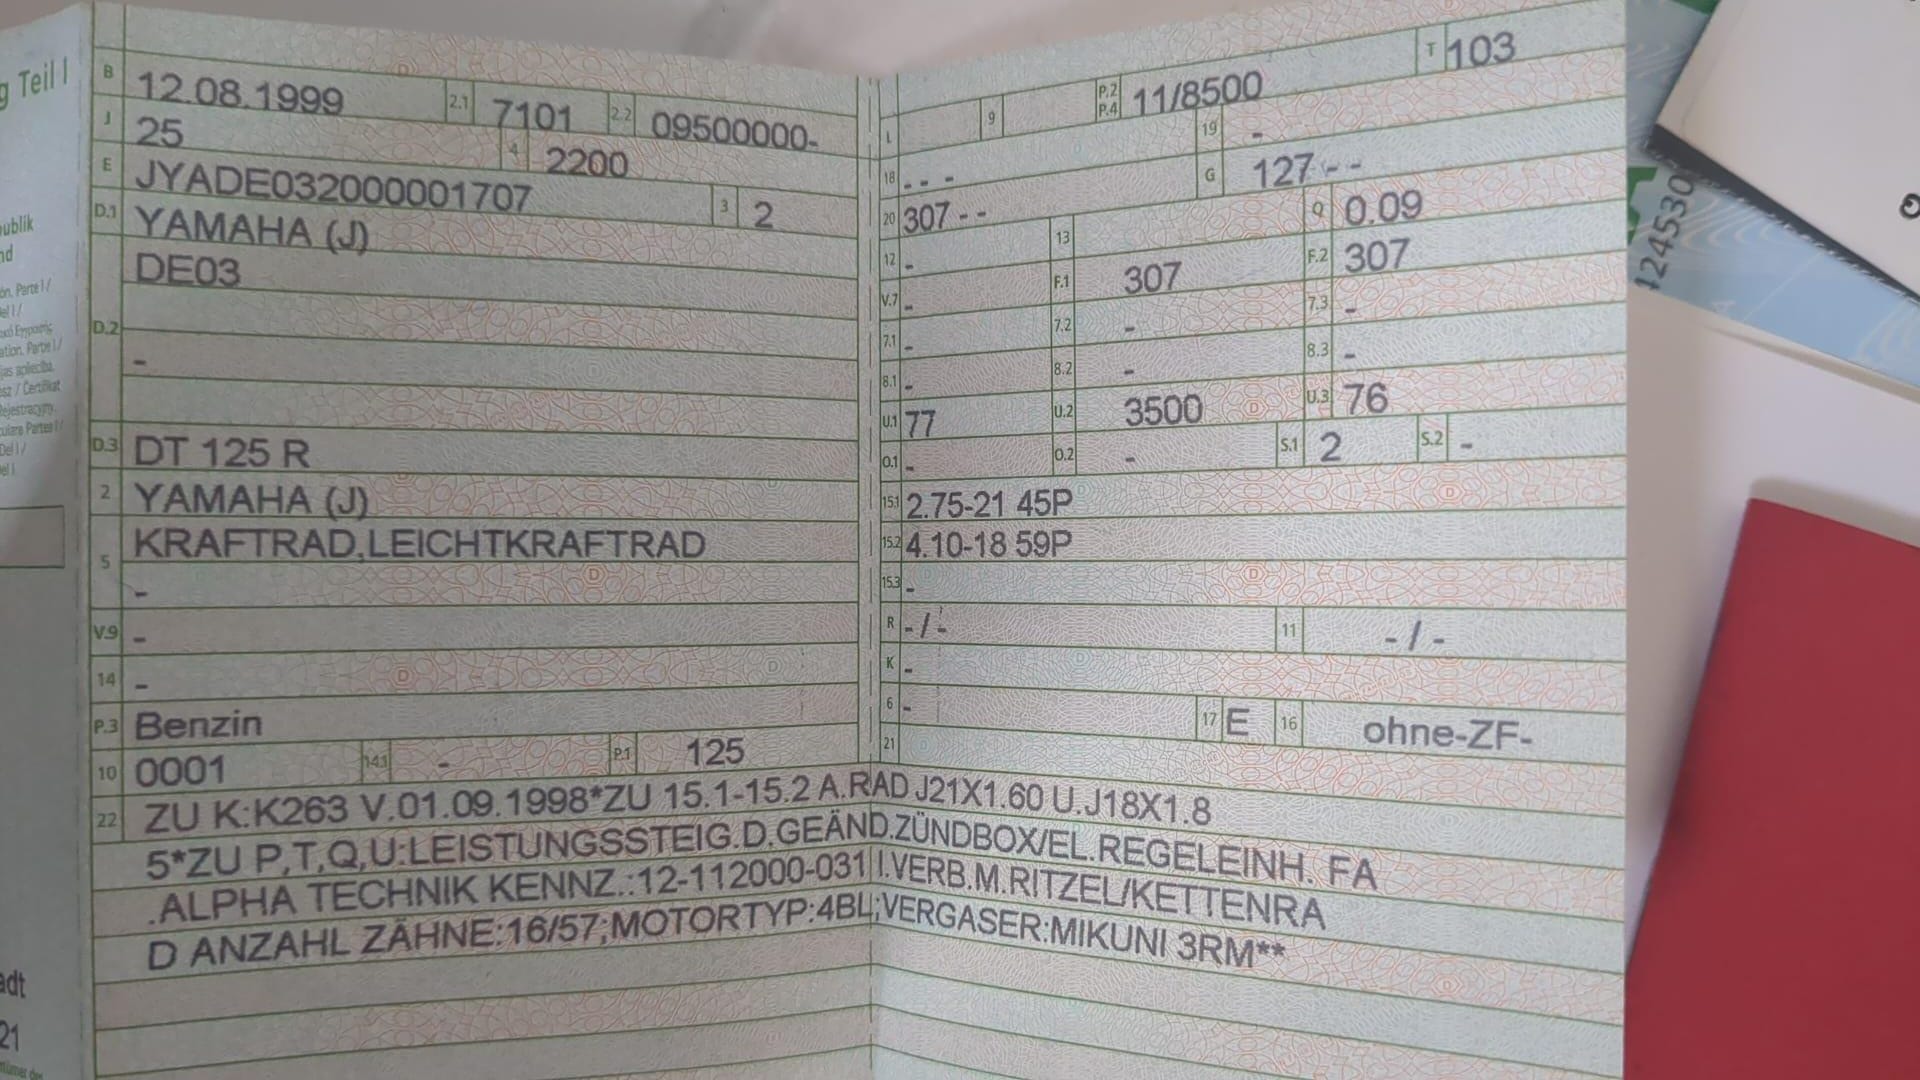 g Teil I
B 12.08.1999 2.1 7101 2.2 09500000-
J 25 4 2200
E JYADE032000001707 3 2
D.1 YAMAHA (J)
DE03
D.2
-
D.3 DT 125 R
2 YAMAHA (J)
5 KRAFTRAD,LEICHTKRAFTRAD
-
V.9 -
14 -
P.3 Benzin
10 0001 14.1 - P.1 125
L 9 P.2 P.4 11/8500 T 103
18 - - - 19 -
20 307 - - G 127 - -
12 - 13 Q 0.09
V.7 - F.1 307 F.2 307
7.1 - 7.2 - 7.3 -
8.1 - 8.2 - 8.3 -
U.1 77 U.2 3500 U.3 76
O.1 - O.2 - S.1 2 S.2 -
15.1 2.75-21 45P
15.2 4.10-18 59P
15.3 -
R - / - 11 - / -
K -
6 - 17 E 16 ohne-ZF-
21
22 ZU K:K263 V.01.09.1998*ZU 15.1-15.2 A.RAD J21X1.60 U.J18X1.8
5*ZU P,T,Q,U:LEISTUNGSSTEIG.D.GEÄND.ZÜNDBOX/EL.REGELEINH. FA
.ALPHA TECHNIK KENNZ.:12-112000-031 I.VERB.M.RITZEL/KETTENRA
D ANZAHL ZÄHNE:16/57;MOTORTYP:4BL;VERGASER:MIKUNI 3RM**
adt
21